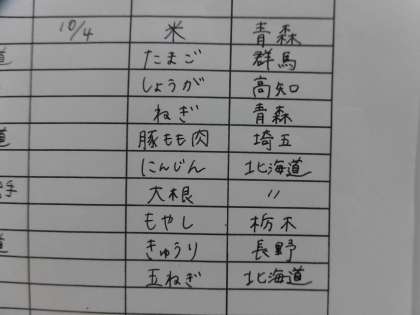 10/4 米 青森
道 たまご 群馬
しょうが 高知
ねぎ 青森
道 豚もも肉 埼玉
にんじん 北海道
手 大根 〃
もやし 栃木
道 きゅうり 長野
玉ねぎ 北海道